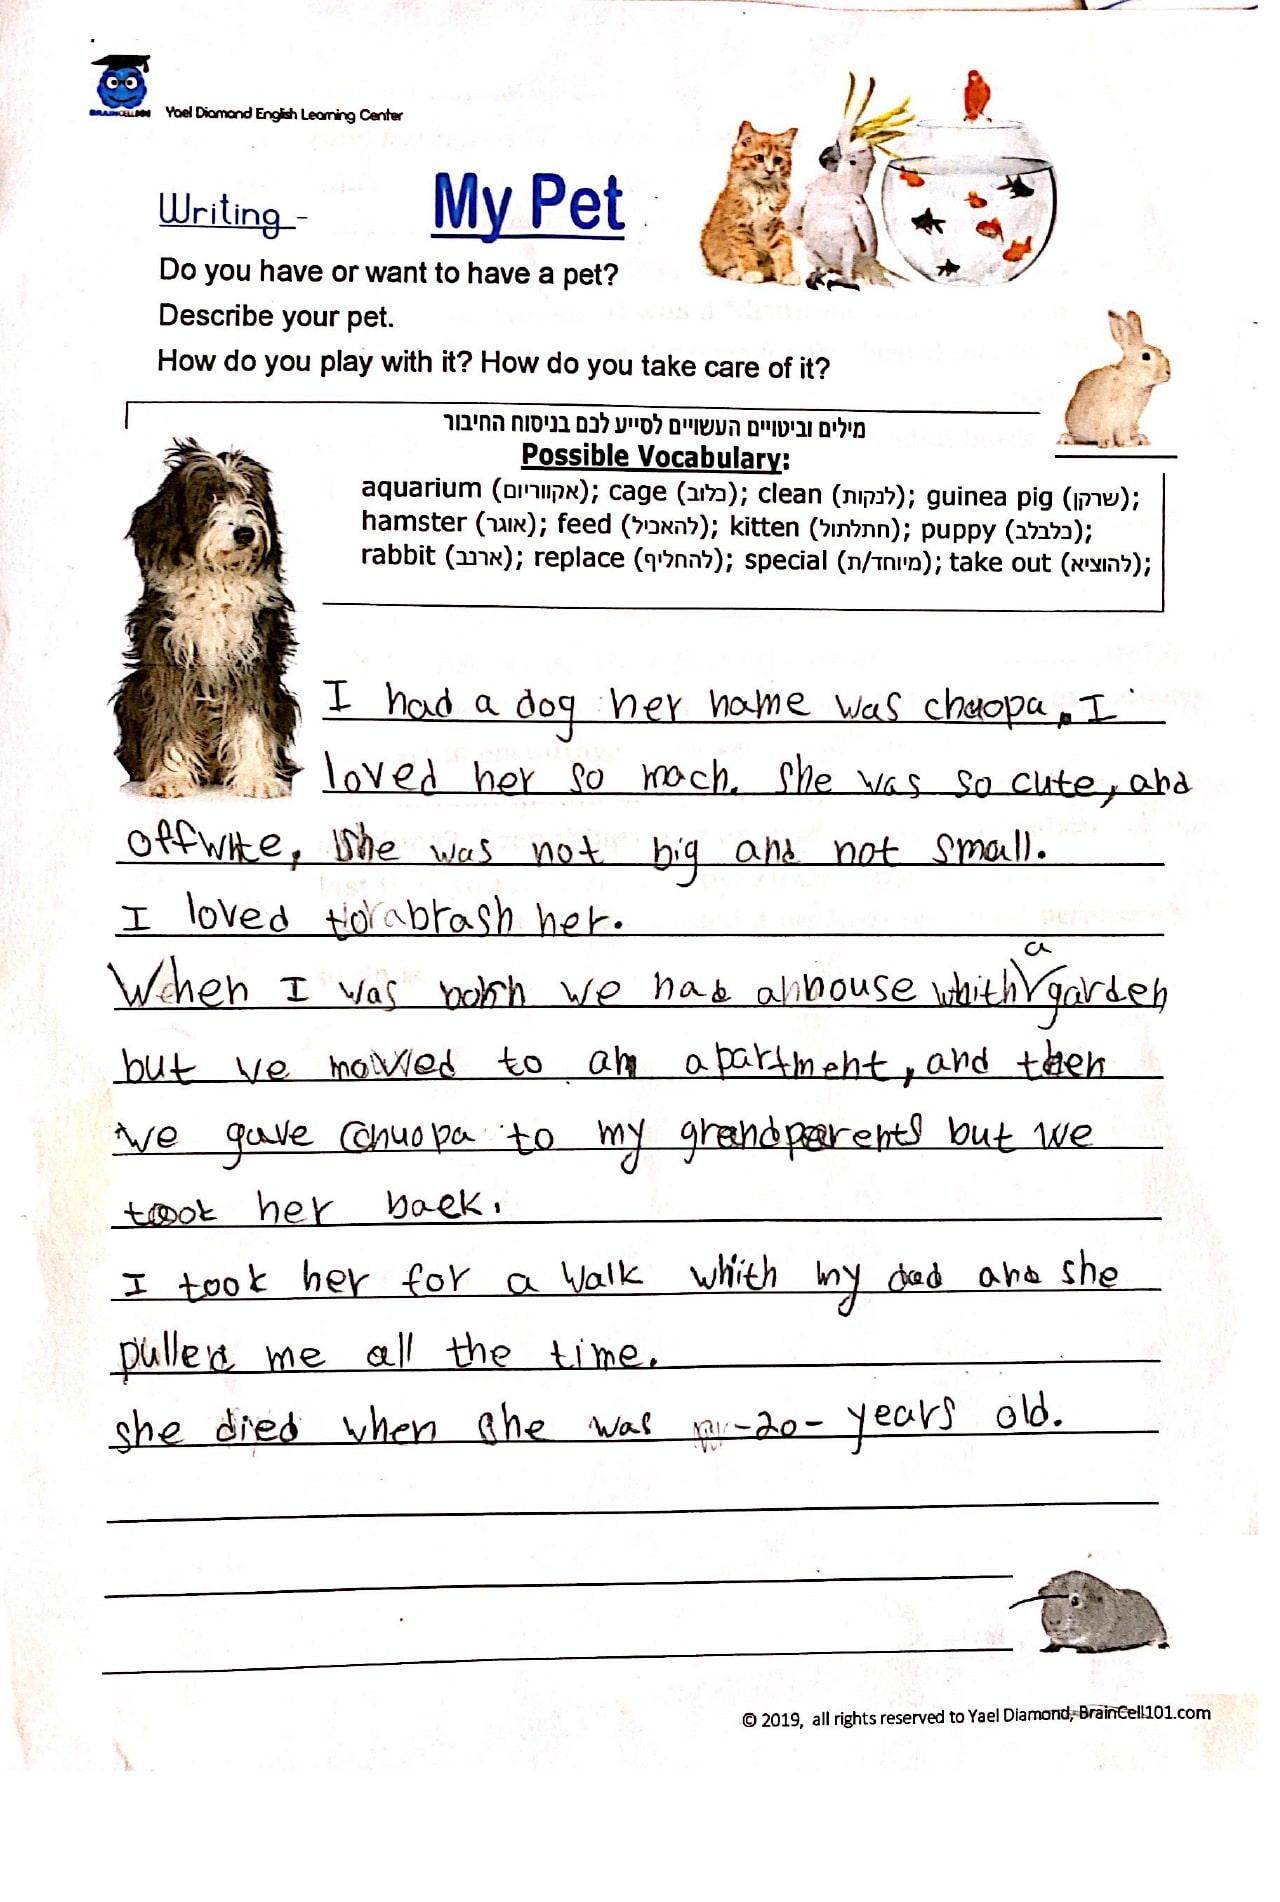 BRAINCELL101
Yael Diamond English Learning Center
Writing -
My Pet
Do you have or want to have a pet?
Describe your pet.
How do you play with it? How do you take care of it?
מילים וביטויים העשויים לסייע לכם בניסוח החיבור
Possible Vocabulary:
aquarium (אקווריום); cage (כלוב); clean (לנקות); guinea pig (שרקן);
hamster (אוגר); feed (להאכיל); kitten (חתלתול); puppy (כלבלב);
rabbit (ארנב); replace (להחליף); special (מיוחד/ת); take out (להוציא);
I had a dog her name was chuopa, I
loved her so mach. she was so cute, and
offwite, she was not big and not small.
I loved to brash her.
When I was born we had an house whith a garden
but we moved to an apartment, and then
we gave Chuopa to my grandparents but we
took her back.
I took her for a walk whith my dad and she
pulled me all the time.
she died when she was -20- years old.
© 2019, all rights reserved to Yael Diamond, BrainCell101.com